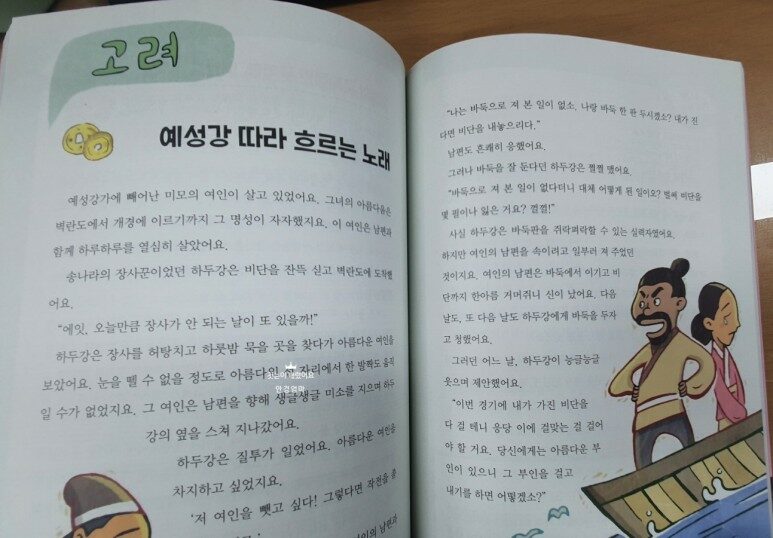 고려
예성강 따라 흐르는 노래
예성강가에 빼어난 미모의 여인이 살고 있었어요. 그녀의 아름다움은
벽란도에서 개경에 이르기까지 그 명성이 자자했지요. 이 여인은 남편과
함께 하루하루를 열심히 살았어요.
송나라의 장사꾼이었던 하두강은 비단을 잔뜩 싣고 벽란도에 도착했
어요.
“에잇, 오늘만큼 장사가 안 되는 날이 또 있을까!”
하두강은 장사를 허탕치고 하룻밤 묵을 곳을 찾다가 아름다운 여인을
보았어요. 눈을 뗄 수 없을 정도로 아름다워 자리에서 한 발짝도 움직
일 수가 없었지요. 그 여인은 남편을 향해 생글생글 미소를 지으며 하두
강의 옆을 스쳐 지나갔어요.
하두강은 질투가 일었어요. 아름다운 여인을
차지하고 싶었지요.
‘저 여인을 뺏고 싶다! 그렇다면 작전을 좀
여인의 남편과
“나는 바둑으로 져 본 일이 없소. 나랑 바둑 한 판 두시겠소? 내가 진
다면 비단을 내놓으리다.”
남편도 흔쾌히 응했어요.
그러나 바둑을 잘 둔다던 하두강은 쩔쩔 맸어요.
“바둑으로 져 본 일이 없다더니 대체 어떻게 된 일이오? 벌써 비단을
몇 필이나 잃은 거요? 껄껄!”
사실 하두강은 바둑판을 쥐락펴락할 수 있는 실력자였어요.
하지만 여인의 남편을 속이려고 일부러 져 주었던
것이지요. 여인의 남편은 바둑에서 이기고 비
단까지 한아름 거머쥐니 신이 났어요. 다음
날도, 또 다음 날도 하두강에게 바둑을 두자
고 청했어요.
그러던 어느 날, 하두강이 능글능글
웃으며 제안했어요.
“이번 경기에 내가 가진 비단을
다 걸 테니 응당 이에 걸맞는 걸 걸어
야 할 거요. 당신에게는 아름다운 부
인이 있으니 그 부인을 걸고
내기를 하면 어떻겠소?”